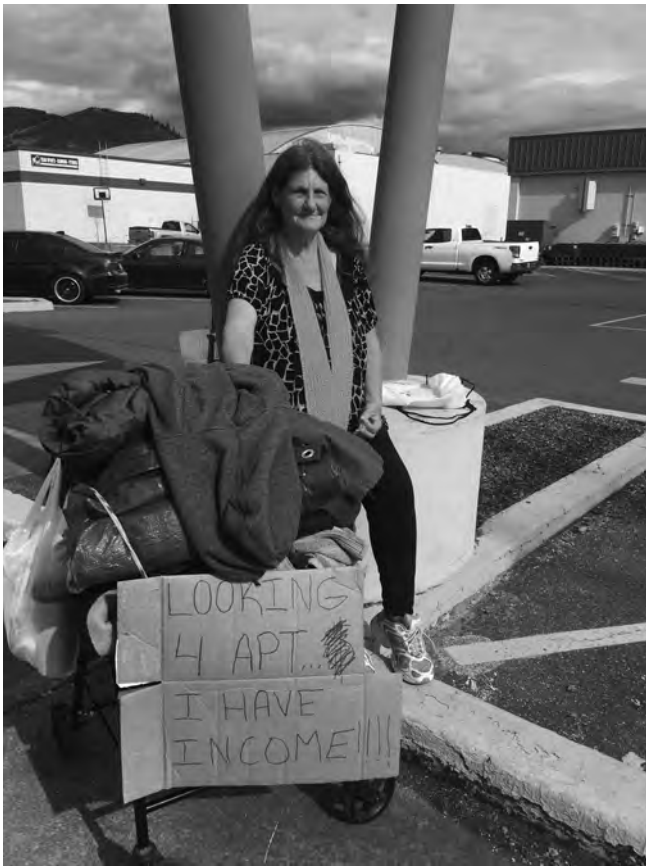 LOOKING
4 APT...
I HAVE
INCOME!!!!